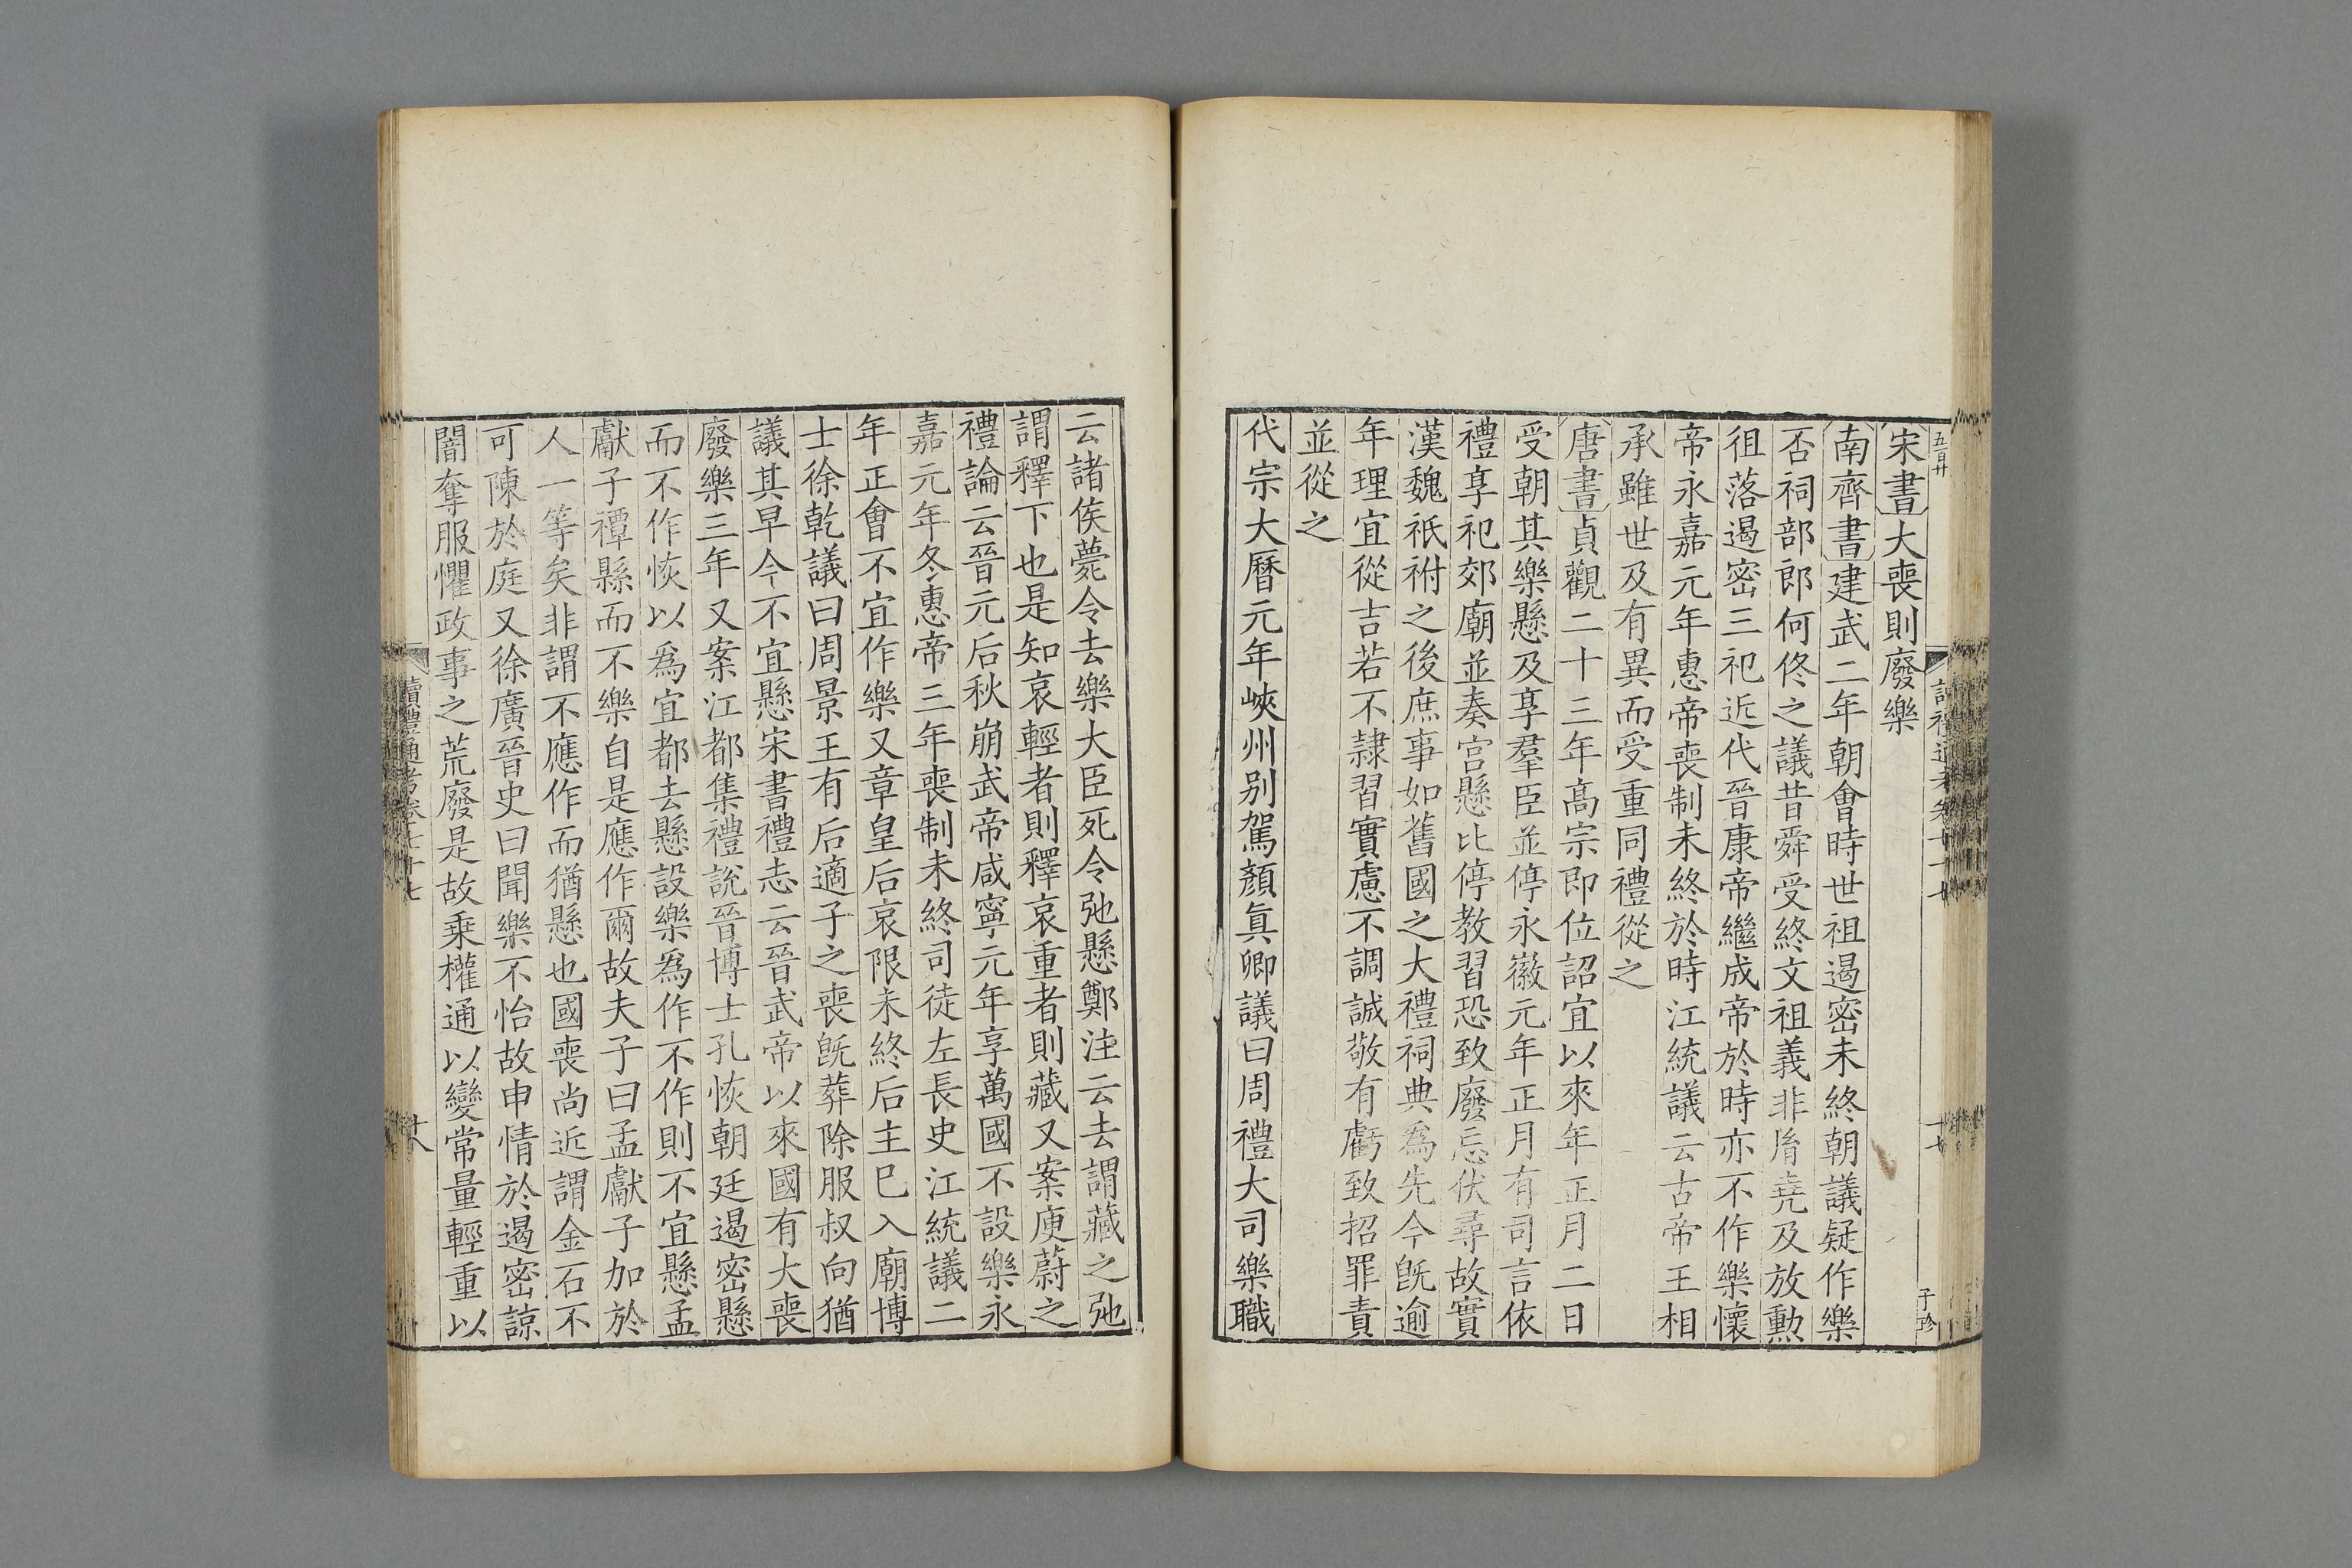 宋書大喪則廢樂
南齊書建武二年朝會時世祖遏密未終朝議疑作樂
否祠部郎何佟之議昔舜受終文祖義非胤堯及放勲
徂落遏密三祀近代晉康帝繼成帝於時亦不作樂懷
帝永嘉元年惠帝喪制未終於時江統議云古帝王相
承雖世及有異而受重同禮從之
唐書貞觀二十三年高宗即位詔宜以來年正月二日
受朝其樂懸及享羣臣並停永徽元年正月有司言依
禮享祀郊廟並奏宮懸比停教習恐致廢忘伏尋故實
漢魏祇祔之後庶事如舊國之大禮祠典為先今旣逾
年理宜從吉若不隷習實慮不調誠敬有虧致招罪責
並從之
代宗大曆元年峽州别駕顏眞卿議曰周禮大司樂職
云諸侯薨令去樂大臣死令弛懸鄭注云去謂藏之弛
謂釋下也是知哀輕者則釋哀重者則藏又案庾蔚之
禮論云晉元后秋崩武帝咸寧元年享萬國不設樂永
嘉元年冬惠帝三年喪制未終司徒左長史江統議二
年正會不宜作樂又章皇后哀限未終后主巳入廟博
士徐乾議曰周景王有后適子之喪旣葬除服叔向猶
議其早今不宜懸宋書禮志云晉武帝以來國有大喪
廢樂三年又案江都集禮說晉博士孔恢朝廷遏密懸
而不作恢以爲宜都去懸設樂爲作不作則不宜懸孟
獻子禫縣而不樂自是應作爾故夫子曰孟獻子加於
人一等矣非謂不應作而猶懸也國喪尚近謂金石不
可陳於庭又徐廣晉史曰聞樂不怡故申情於遏密諒
闇奪服懼政事之荒廢是故乗權通以變常量輕重以
讀禮通考卷七十七
十八
五百廿
十七
子珍